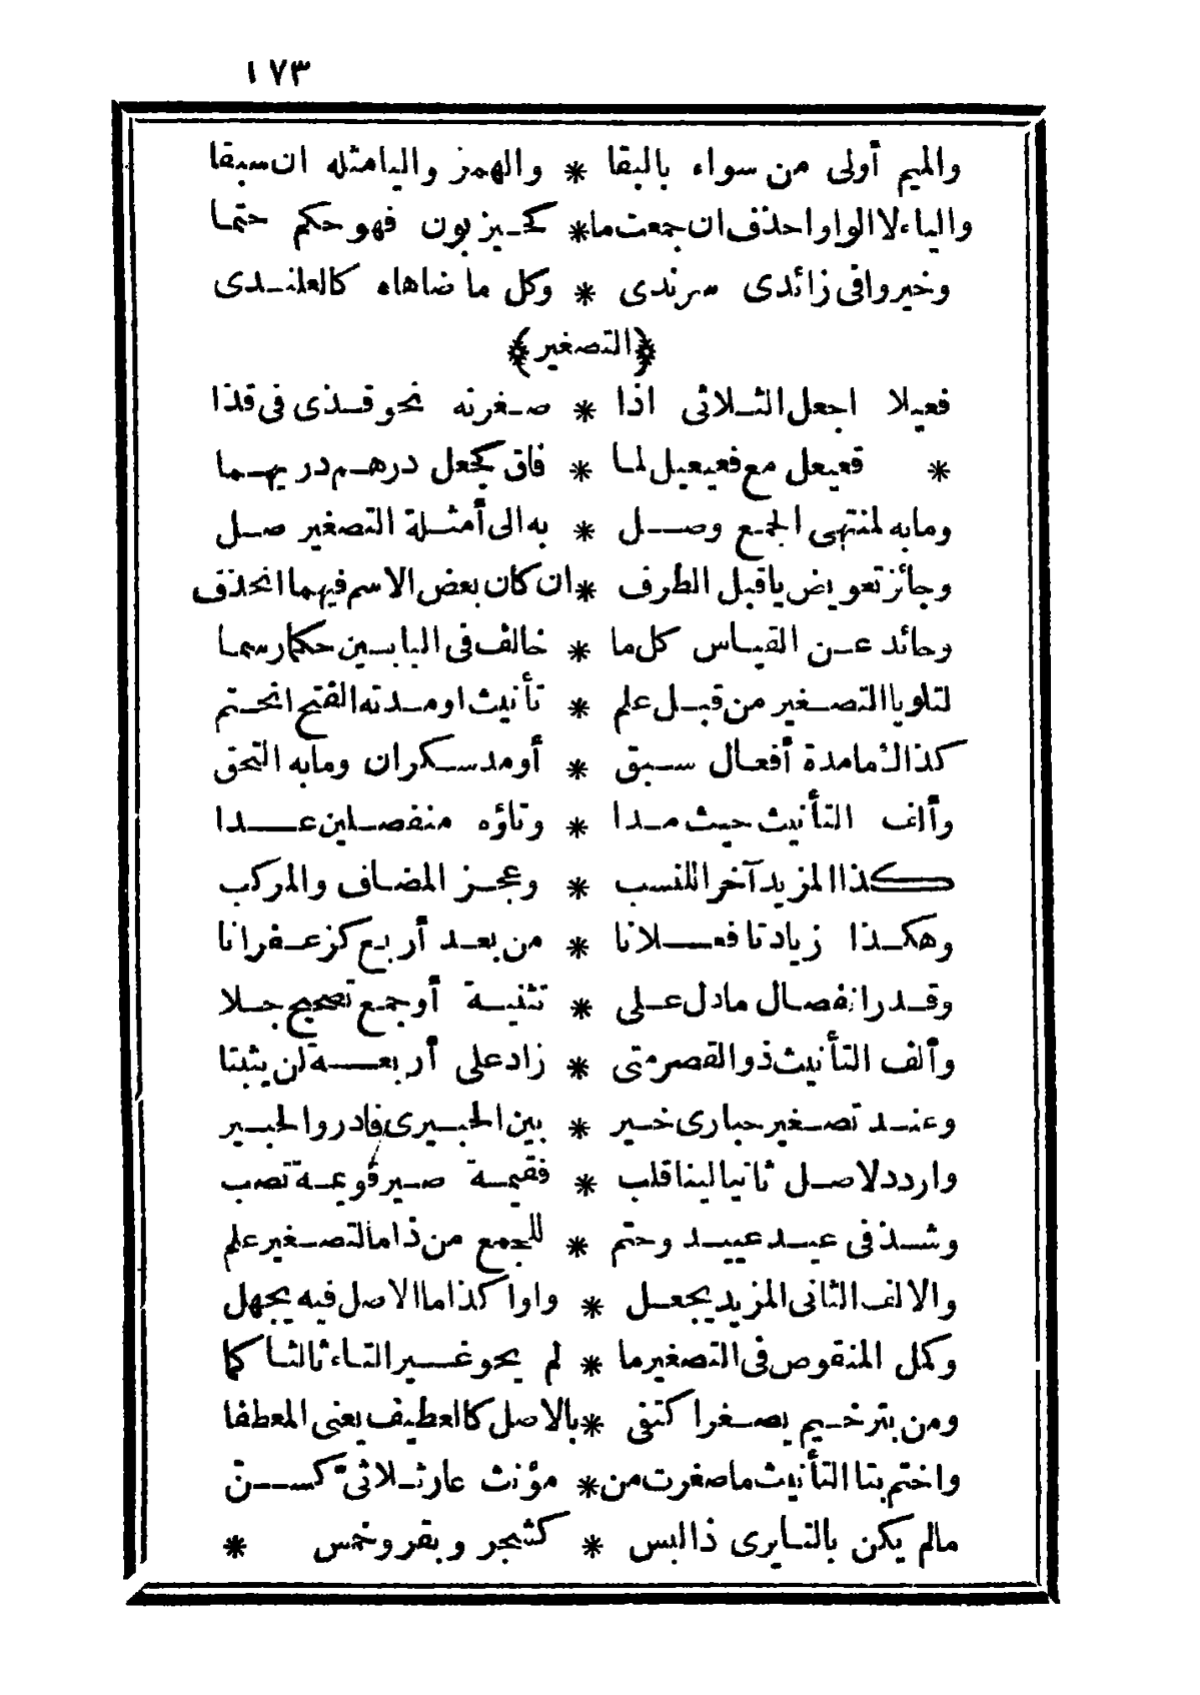 ١٧٣
والميم أولى من سواء بالبقا * والهمز واليا مثله ان سبقا
والياء لا الواو احذف ان جمعت ما * كحيزبون فهو حكم حتما
وخيروا فى زائدى سرندى * وكل ما ضاهاه كالعلندى
﴿التصغير﴾
فعيلا اجعل الثلاثى اذا * صغرته نحو قذى فى قذا
* فعيعل مع فعيعيل لما * فاق كجعل درهم دريهما
وما به لمنتهى الجمع وصل * به الى أمثلة التصغير صل
وجائز تعويض يا قبل الطرف * ان كان بعض الاسم فيهما انحذف
وحائد عن القياس كل ما * خالف فى البابين حكما رسما
لتلو يا التصغير من قبل علم * تأنيث او مدته الفتح انحتم
كذاك ما مدة أفعال سبق * أو مد سكران وما به التحق
وألف التأنيث حيث مدا * وتاؤه منفصلين عدا
كذا المزيد آخر اللنسب * وعجز المضاف والمركب
وهكذا زيادتا فعلانا * من بعد أربع كزعفرانا
وقدر انفصال ما دل على * تثنية أو جمع تصحيح جلا
وألف التأنيث ذو القصر متى * زاد على أربعة لن يثبتا
وعند تصغير حبارى خير * بين الحبيرى فادر والحبير
واردد لاصل ثانيا لينا قلب * فقيمة صير قويمة تصب
وشذ فى عيد عييد وحتم * للجمع من ذا ما لتصغير علم
والالف الثانى المزيد يجعل * واوا كذا ما الاصل فيه يجهل
وكمل المنقوص فى التصغير ما * لم يحو غير التاء ثالثا كما
ومن بترخيم يصغر اكتفى * بالاصل كالعطيف يعنى المعطفا
واختم بتا التأنيث ما صغرت من * مؤنث عار ثلاثى كسن
مالم يكن بالتا يرى ذا لبس * كشجر وبقر وخمس *